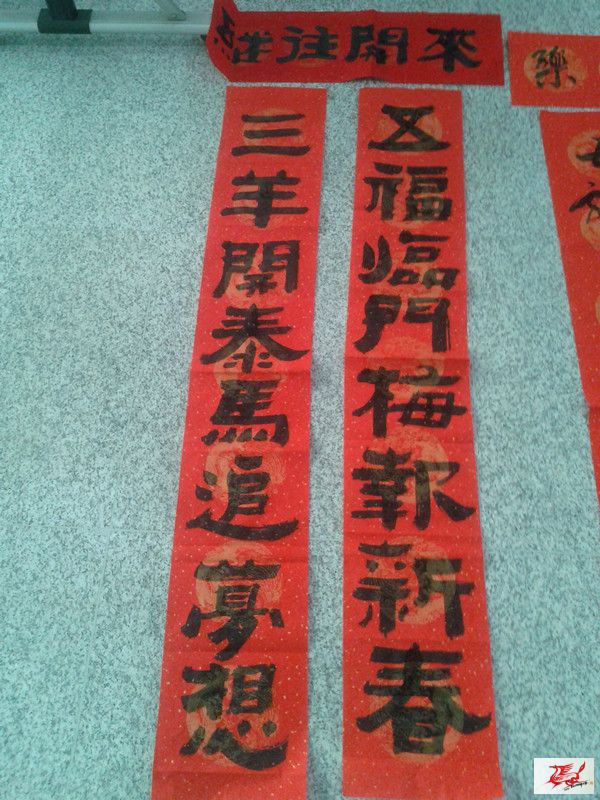 往開來
三羊開泰馬追夢想
五福臨門梅報新春